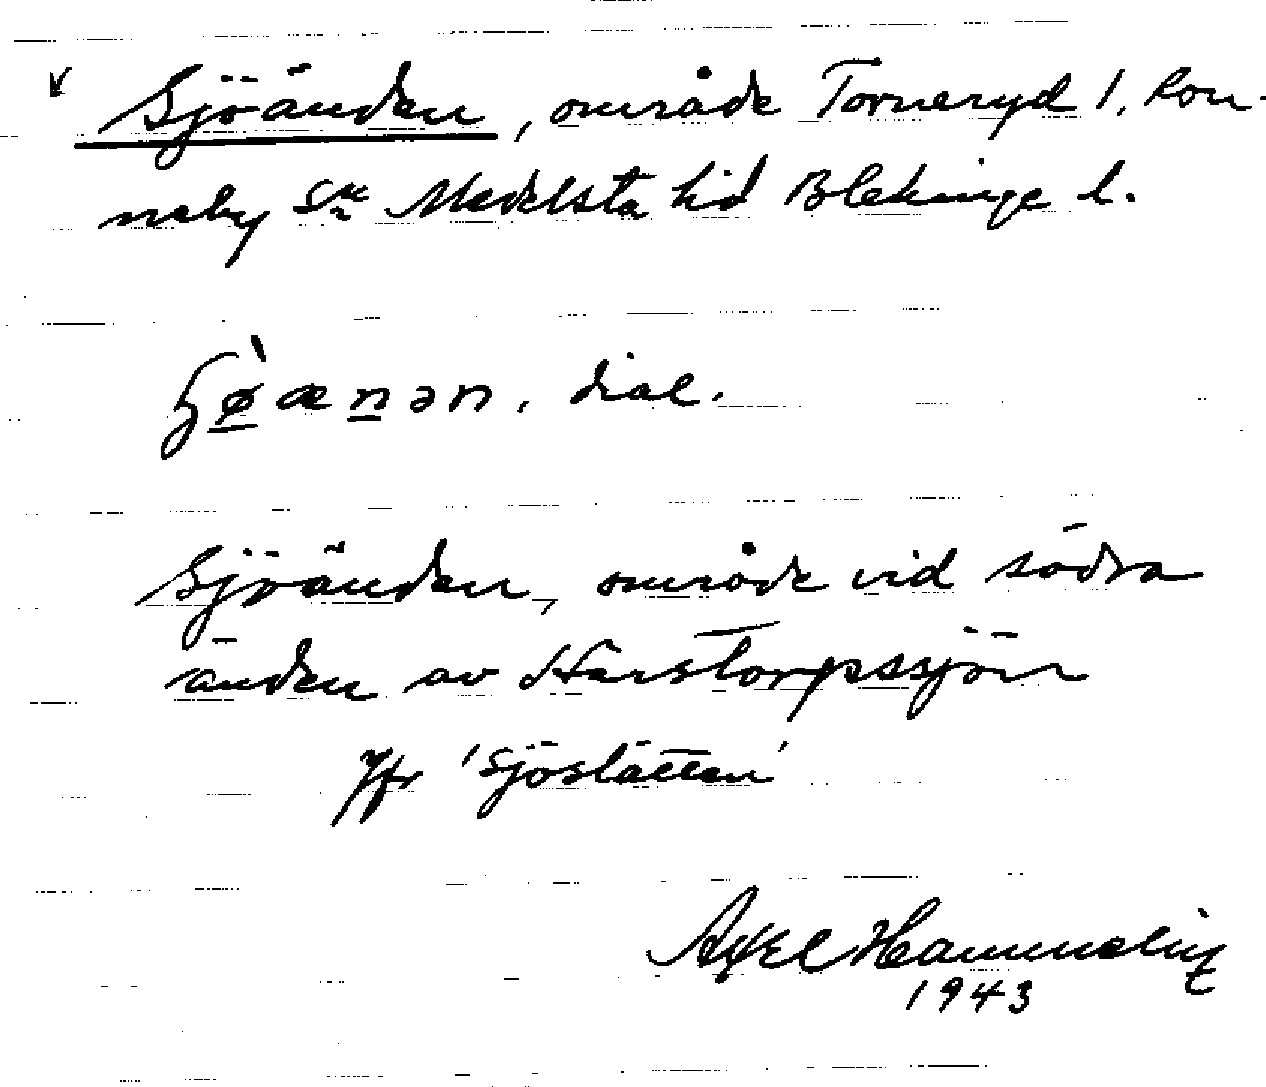 Sjöänden, område Torneryd 1, Ron-
neby sn Medelsta hd Blekinge l.
dial.
Sjöänden, område vid södra
änden av Harstorpssjön
Jfr 'Sjöslätten'
Axel Hammelin
1943